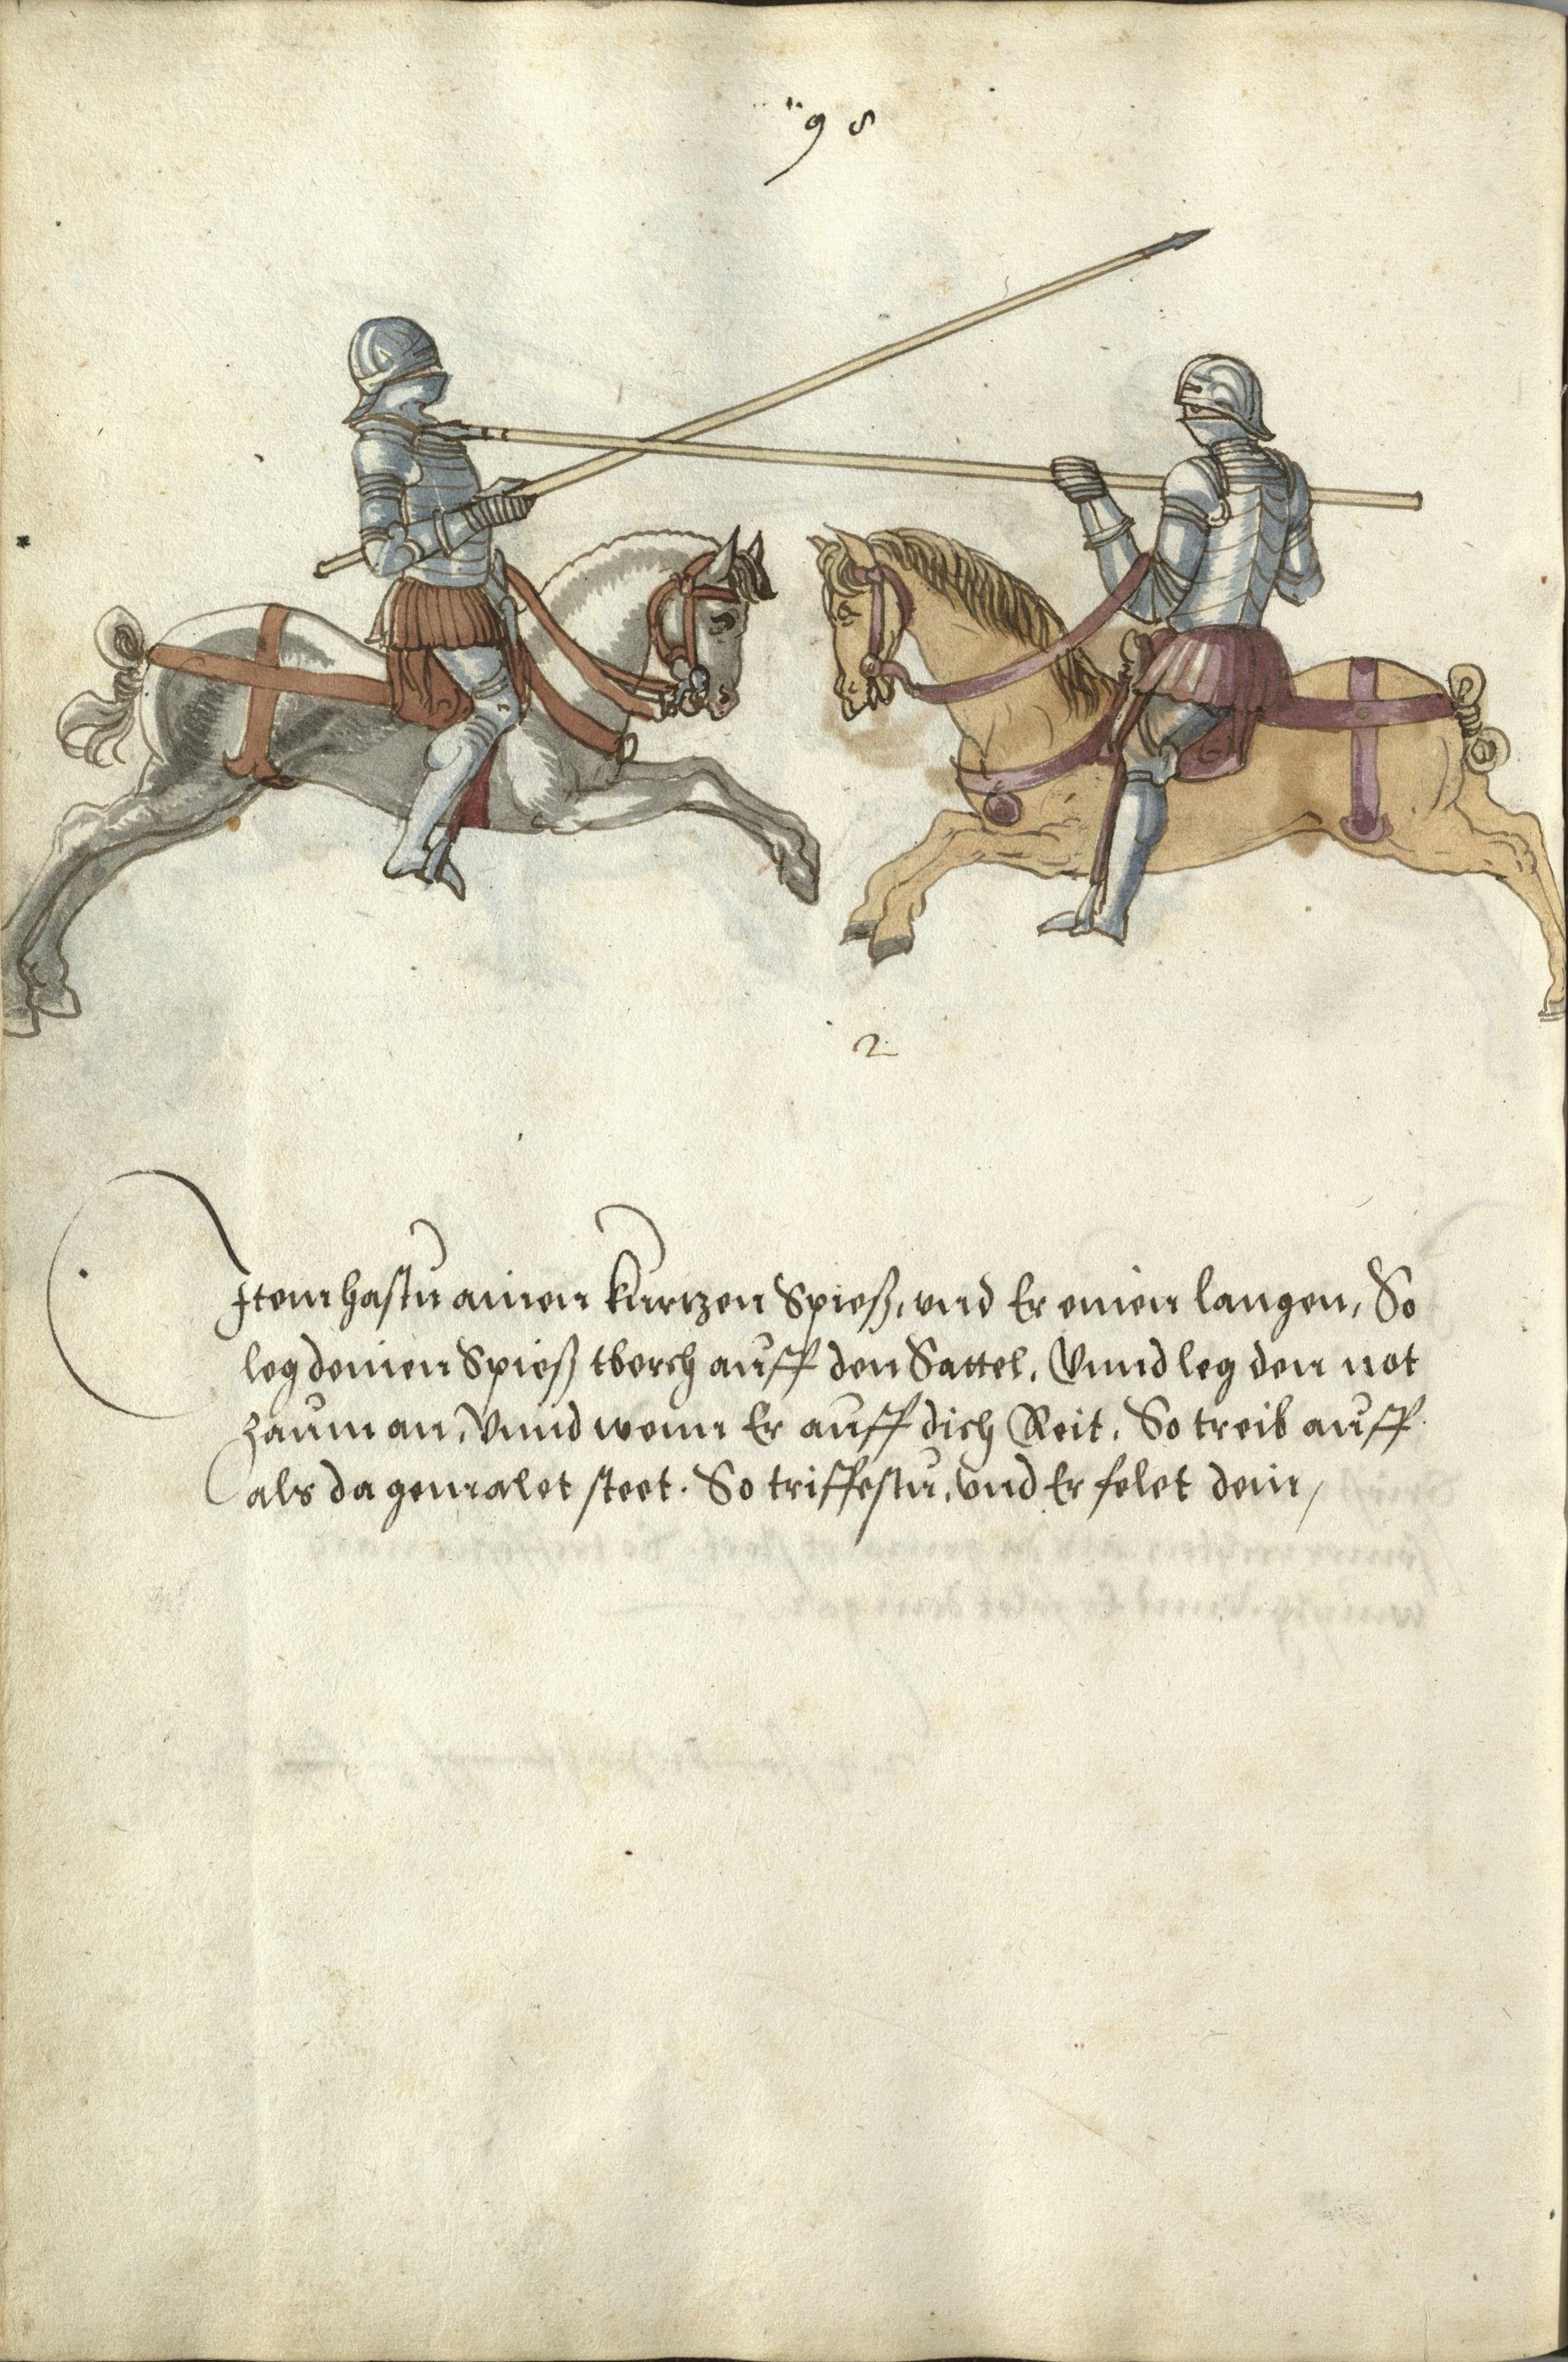 98
2
Item hastu ainen kurtzen Spieß, vnd Er einen langen, So
leg deinen Spieß tberch auff den Sattel, Vnnd leg den not
zaum an, Vnnd wenn Er auff dich Reit, So treib auff
als da gemalet steet. So triffestu, vnd Er felet dein,